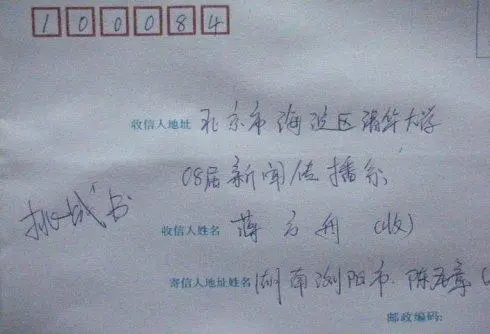 100084
收信人地址 北京市海淀区清华大学
08届新闻传播系
挑战书
收信人姓名 蒋方舟 (收)
寄信人地址姓名 湖南浏阳市. 陈
邮政编码: